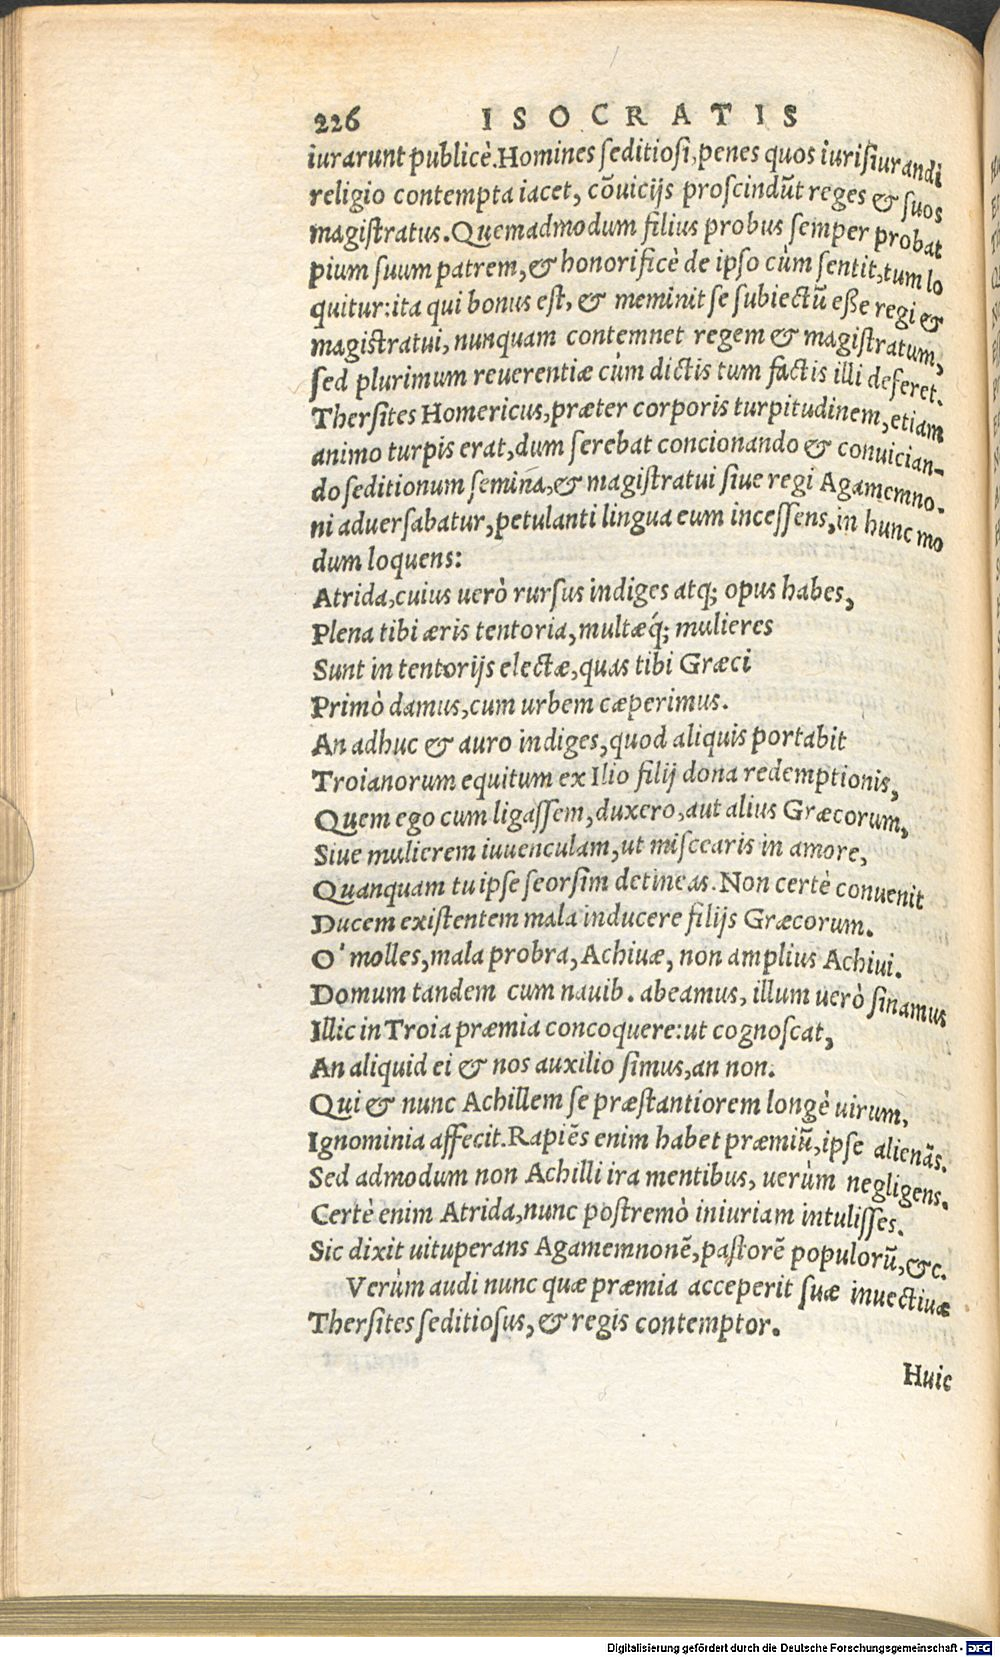 226 ISOCRATIS
iurarunt publicè. Homines seditiosi, penes quos iurisiurandi
religio contempta iacet, cōuicijs proscindūt reges & suos
magistratus. Quemadmodum filius probus semper probat
pium suum patrem, & honorificè de ipso cùm sentit, tum lo
quitur: ita qui bonus est, & meminit se subiectū esse regi &
magistratui, nunquam contemnet regem & magistratum,
sed plurimum reuerentiæ cùm dictis tum factis illi deferet.
Thersites Homericus, præter corporis turpitudinem, etiam
animo turpis erat, dum serebat concionando & conuician-
do seditionum semina, & magistratui siue regi Agamemno-
ni aduersabatur, petulanti lingua eum incessens, in hunc mo
dum loquens:
Atrida, cuius uerò rursus indiges atq; opus habes,
Plena tibi æris tentoria, multæq́; mulieres
Sunt in tentorijs electæ, quas tibi Græci
Primò damus, cum urbem cæperimus.
An adhuc & auro indiges, quod aliquis portabit
Troianorum equitum ex Ilio filij dona redemptionis,
Quem ego cum ligassem, duxero, aut alius Græcorum,
Siue mulierem iuuenculam, ut miscearis in amore,
Quanquam tu ipse seorsim detineas. Non certè conuenit
Ducem existentem mala inducere filijs Græcorum.
O' molles, mala probra, Achiuæ, non amplius Achiui.
Domum tandem cum nauib. abeamus, illum uerò sinamus
Illic in Troia præmia concoquere: ut cognoscat,
An aliquid ei & nos auxilio simus, an non.
Qui & nunc Achillem se præstantiorem longè uirum,
Ignominia affecit. Rapiēs enim habet præmiū, ipse alienās.
Sed admodum non Achilli ira mentibus, uerùm negligens.
Certè enim Atrida, nunc postremò iniuriam intulisses.
Sic dixit uituperans Agamemnonē, pastorē populorū, &c.
Verùm audi nunc quæ præmia acceperit suæ inuectiuæ
Thersites seditiosus, & regis contemptor.
Huic
Digitalisierung gefördert durch die Deutsche Forschungsgemeinschaft - DFG